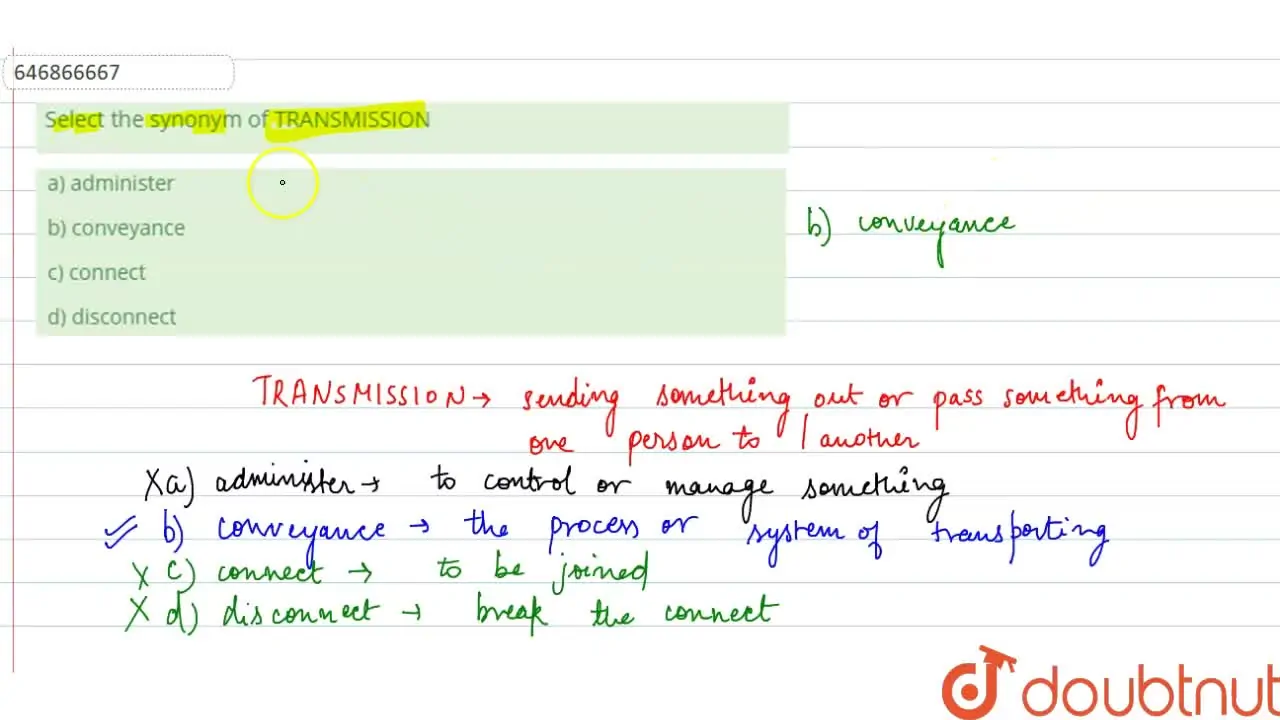 646866667
Select the synonym of TRANSMISSION
a) administer
b) conveyance
c) connect
d) disconnect
b) conveyance
TRANSMISSION → sending something out or pass something from
one person to / another
X a) administer → to control or manage something
b) conveyance → the process or system of transporting
X c) connect → to be joined
X d) disconnect → break the connect
doubtnut